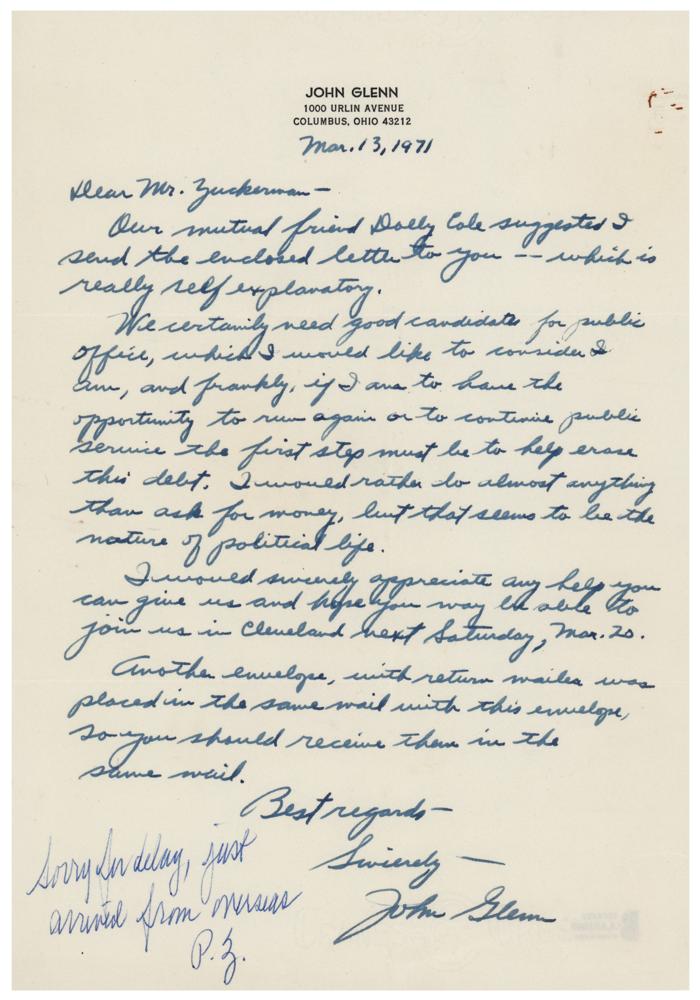 JOHN GLENN
1000 URLIN AVENUE
COLUMBUS, OHIO 43212
Mar. 13, 1971
Dear Mr. Zuckerman —
Our mutual friend Dolly Cole suggested I
send the enclosed letter to you -- which is
really self explanatory.
We certainly need good candidates for public
office, which I would like to consider I
am, and frankly, if I am to have the
opportunity to run again or to continue public
service the first step must be to help erase
this debt. I would rather do almost anything
than ask for money, but that seems to be the
nature of political life.
I would sincerely appreciate any help you
can give us and hope you may be able to
join us in Cleveland next Saturday, Mar. 20.
Another envelope, with return mailer was
placed in the same mail with this envelope,
so you should receive them in the
same mail.
Best regards —
Sincerely —
John Glenn
Sorry for delay, just
arrived from overseas
P. Z.